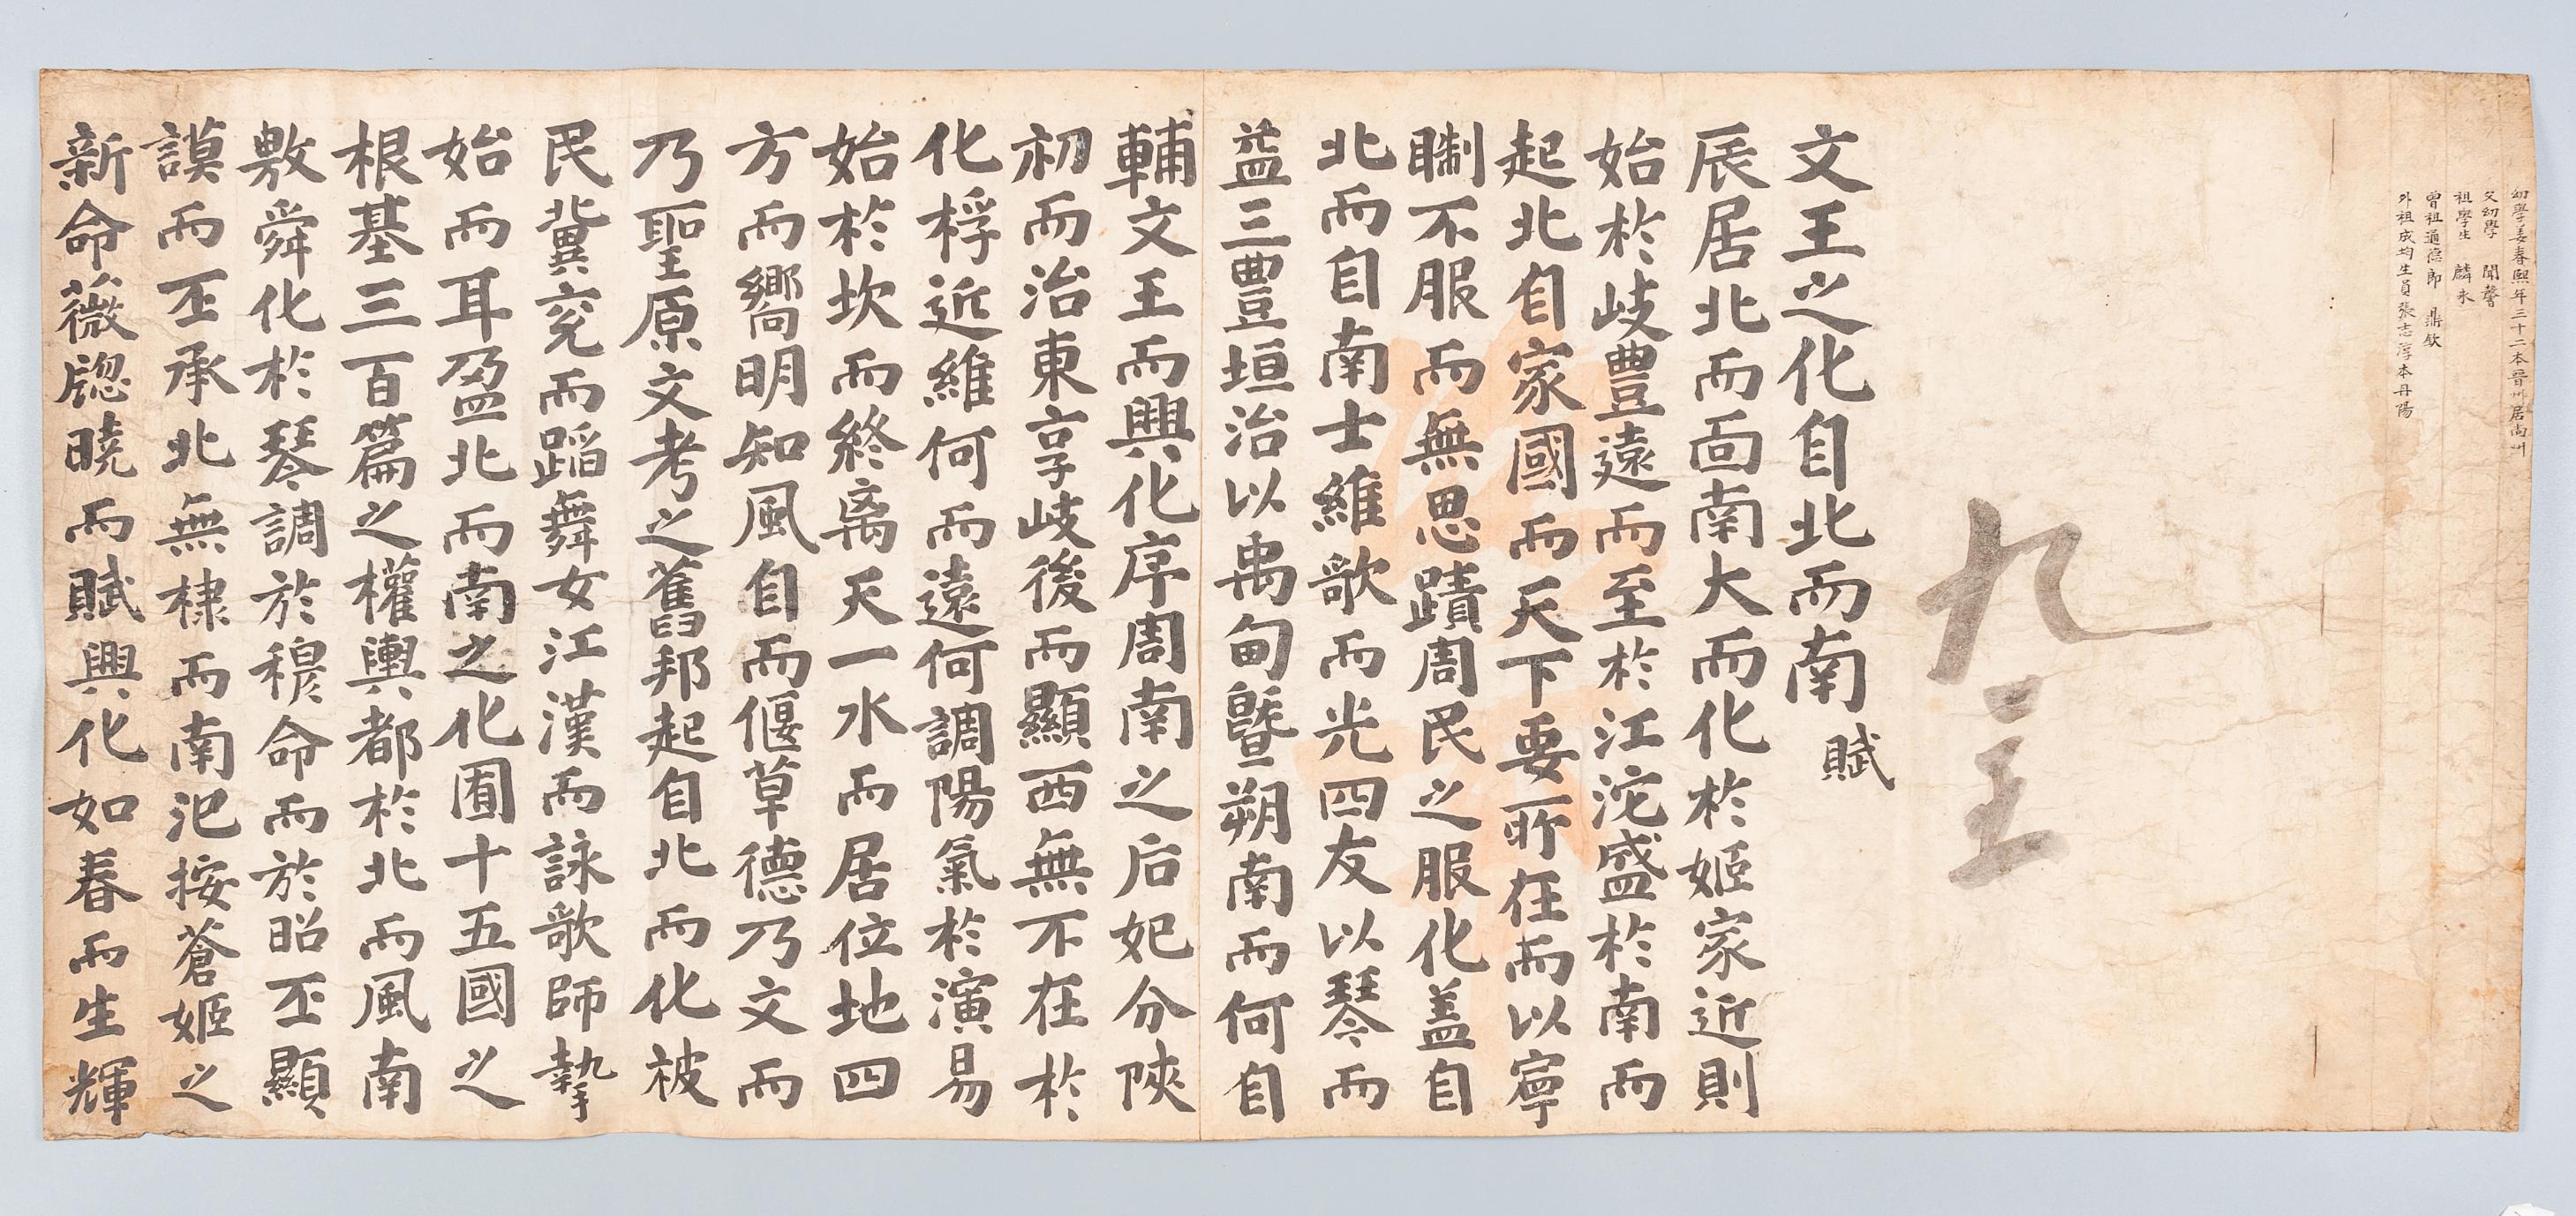 幼學姜春熙年三十二本晉州居尙州
父幼學 聞馨
祖學生 麟永
曾祖通德郞 鼎欽
外祖成均生員張志淳本丹陽
九
文王之化自北而南 賦
辰居北而面南大而化於姬家近則
始於岐豊遠而至於江沱盛於南而
起北自家國而天下要所在而以寧
不服而無思蹟周民之服化盖自
北而自南士維歌而光四友以琴而
益三豊垣治以禹甸曁朔南而何自
輔文王而興化序周南之后妃分陝
初而治東享岐後而顯西無不在於
化桴近維何而遠何調陽氣於演易
始於坎而終离天一水而居位地四
方而嚮明知風自而偃草德乃文而
乃聖原文考之舊邦起自北而化被
民冀兖而蹈舞女江漢而詠歌師摯
始而耳盈北而南之化囿十五國之
根基三百篇之權輿都於北而風南
敷舜化於琴調於穆命而於昭丕顯
謨而丕承北無棣而南汜按蒼姬之
新命薇牕曉而賦興化如春而生輝